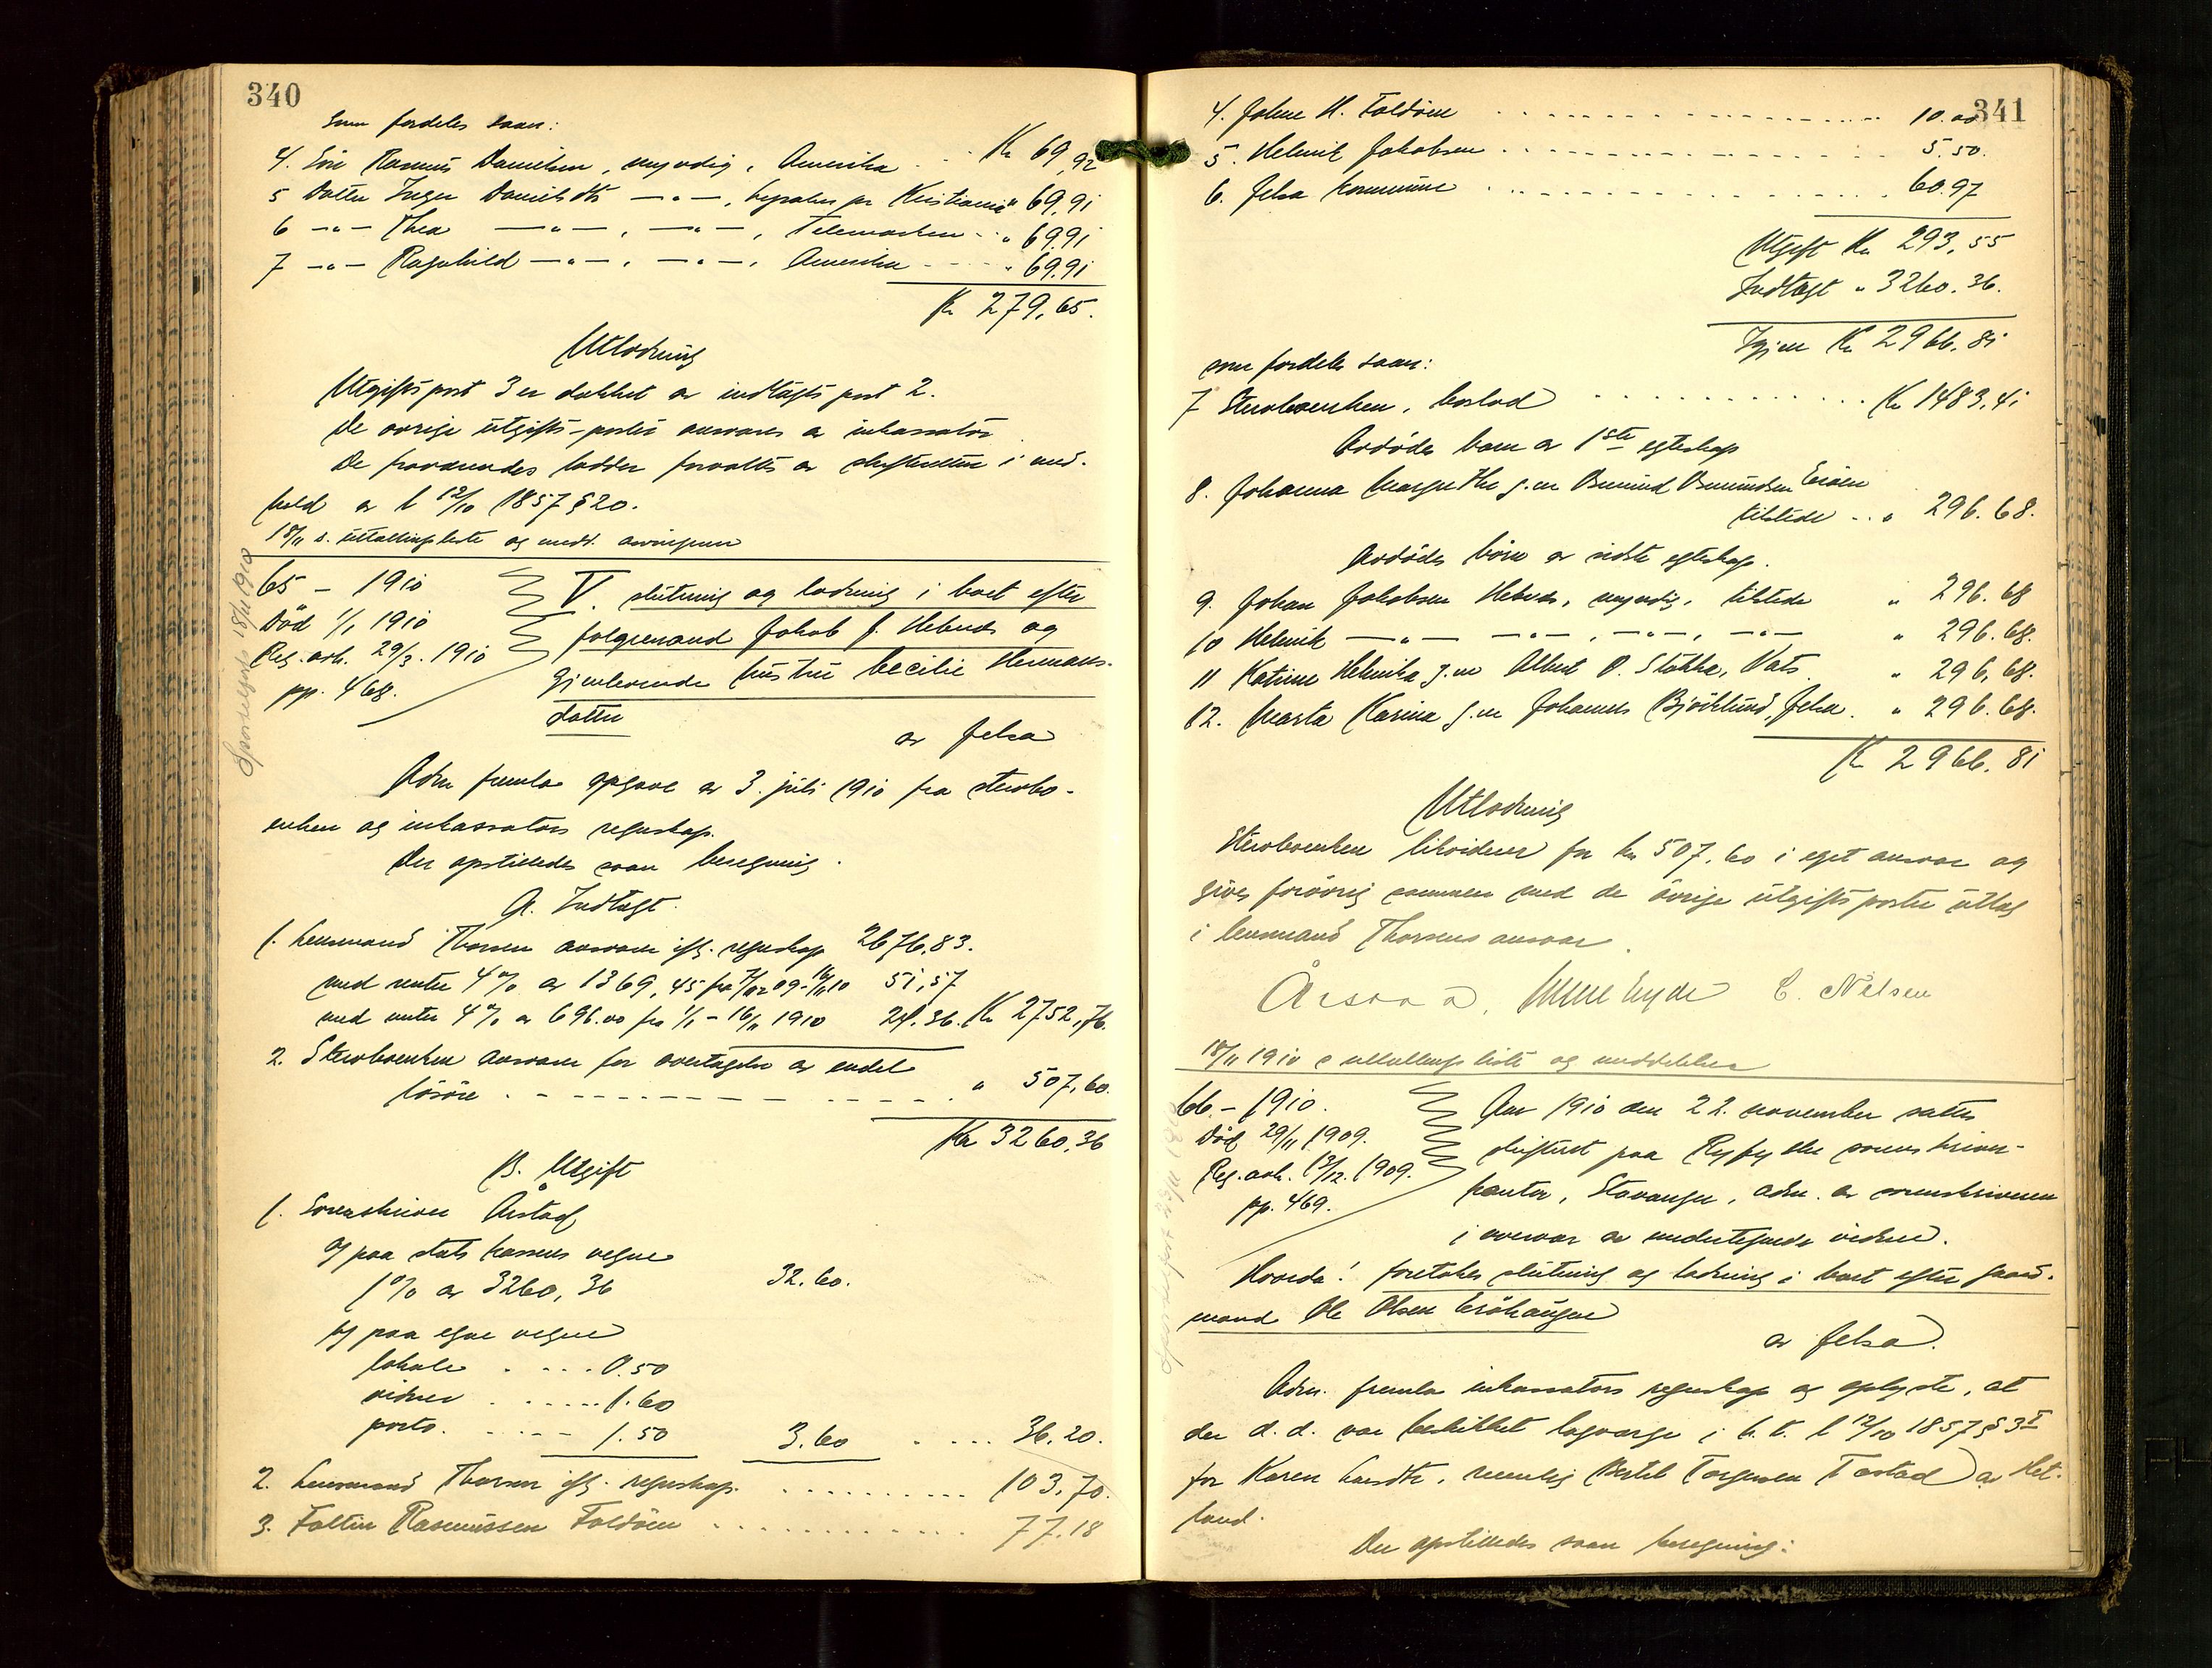 340
som fordeles saan:
4. Søn Rasmus Danielsen, myndig, Amerika . . Kr 69,92
5 Datter Inger Danielsdtr —„—, hypsalen pr Kristiania " 69,91
6 —„— Thea —„—, —„—, Telemarken . . „ 69.91
7 —„— Ragnhild —„—, —„—, Amerika . . . „ 69.91
Kr 279,65.
Utlodning
Utgiftspost 3 er dækket av indtægts post 2.
De øvrige utgifts-poster ansvares av inkassator.
De fraværendes lodder forvaltes av skifteretten i med-
hold av l 12/10 1857 § 20.
18/11 s. uttællingsliste og medd. arvingerne
Sportelregnsk 18/11 1910
65 – 1910
Død 1/1 1910
Reg. avh. 29/3. 1910
pp. 468.
V. slutning og lodning i boet efter
følgemand Jakob J. Hebnes og
gjenlevende hustru Cecilie Hermans-
datter
av Jelsa
Adm fremla opgave av 3. juli 1910 fra stervbo-
enken og inkassators regnskap.
Der opstilledes saan beregning.
A. Indtægt.
1. Lensmand Thorsen ansvarer iflg. regnskap 2676,83.
med renter 4 % av 1369,45 fra 7/12 09–16/11 10 51,57
med renter 4 % av 696.00 fra 1/1 – 16/11 1910 24.36. Kr 2752,76.
2. Stervboenken ansvarer for overtagelse av endel
løsøre . . . . . . . . . „ 507,60.
Kr 3260,36
B. Utgift
1. Sorenskriver Årstad
a) paa stats kassens vegne
1 % av 3260,36 32.60.
b) paa egne vegne
lokale . . . . 0.50
vidner . . . . . 1.60
porto. . . . . 1.50 3.60 . . . . 36,20.
2. Lensmand Thorsen iflg. regnskap. . . . . . . . . . . 103,70.
3. Faltin Rasmussen Foldøen . . . . . . . . . . . . 77.18
341
4. Johne H. Foldøen . . . . . . . . . . . . . . 10.00
5. Helmik Jakobsen . . . . . . . . . . . . . 5.50.
6. Jelsa kommune . . . . . . . . . . . . . 60.97
Utgift Kr 293,55
Indtægt „ 3260.36.
Igjen Kr 2966,81
som fordeles saan:
7 Stervboenken, boslod . . . . . . . . . . . Kr 1483,41
Avdødes barn av 1ste egteskap
8. Johanna Margrethe g.m Osmund Osmundsen Eiøen
tilstede . . „ 296.68.
Avdødes børn av sidste egteskap.
9. Johan Jakobsen Hebnes, myndig, tilstede „ 296.68
10 Helmik —„— —„—, —„—, —„— „ 296.68.
11 Katrine Helmika g.m Albert O. Stokka, Vats. „ 296,68.
12. Marta Karina g.m Johannes Bjørklund, Jelsa. „ 296.68.
Kr 2966.81
Utlodning
Stervboenken likviderer for kr 507,60 i eget ansvar og
gives forøvrig sammen med de øvrige utgiftsposter utlæg
i lensmand Thorsens ansvar.
Årstad. C. Nilsen
18/11 1910 s utællingsliste og meddelelser
66. – 1910.
Død 29/11 1909.
Reg. avh. 13/12. 1909.
pp. 469.
Aar 1910 den 22. november sattes
skifteret paa Ryfylke sorenskriver-
kontor, Stavanger, adm. av sorenskriveren
i overvær av undertegnede vidner.
Hvorda! foretokes slutning og lodning i boet efter gaard-
mand Ole Olsen Erøhaugen
av Jelsa.
Adm. fremla inkassators regnskap og oplyste, at
der d. d. var beskikket lagværge i h. t. l 12/10 1857 § 3 I
for Karen Larsdtr, nemlig Bertel Torgersen Tastad av Het-
land.
Der opstilledes saan beregning: